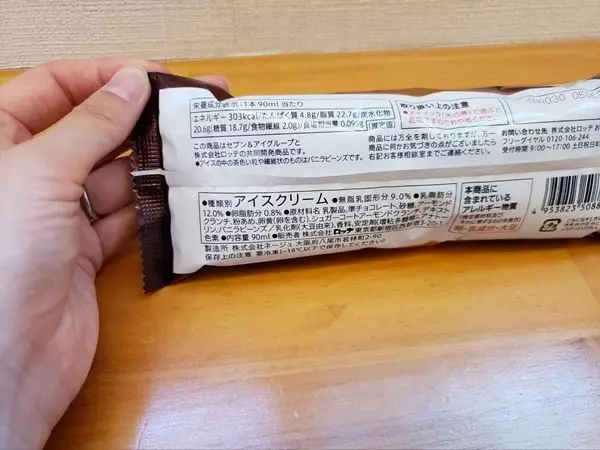 栄養成分表示:1本 90ml当たり
エネルギー 303kcal/たんぱく質 4.8g/脂質 22.7g/炭水化物
20.6g(糖質 18.7g/食物繊維 2.0g)/食塩相当量 0.095g (推定値)
この商品はセブン&アイグループと
株式会社ロッテの共同開発商品です。
●アイスの中の茶色い粒や繊維状のものはバニラビーンズです。
取り扱い上の注意
商品には万全を期しておりますが、万一
商品に何かお気づきの点がございましたら
右記お客様相談室までご連絡ください。
お問い合わせ先 株式会社ロッテ お
フリーダイヤル 0120-106-244
受付時間 9:00~17:00 土日祝日
●種類別 アイスクリーム ●無脂乳固形分 9.0% ●乳脂肪分
12.0% ●卵脂肪分 0.8% ●原材料名 乳製品、準チョコレート、砂糖、アーモンド
クランチ、粉あめ、卵黄(卵を含む)、シュガーコートアーモンドクランチ
リン、バニラビーンズ/乳化剤(大豆由来)、香料、安定剤(増粘多糖類)、アナトー
色素 ●内容量 90ml ●販売者 株式会社 ロッテ 東京都新宿区西新宿3-20-1
製造所 株式会社ネージュ 大阪府八尾市若林町2-90
保存上の注意 要冷凍(-18℃以下で保存してください)
本商品に
含まれている
アレルギー物質
卵・乳成分・大豆
4 953823 508